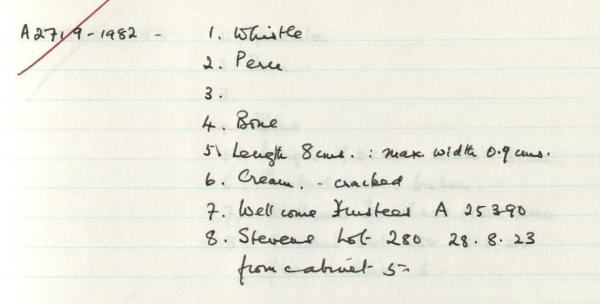 A2719-1982 - 1. Whistle
2. Peru
3.
4. Bone
5. Length 8cms. : max. width 0.9 cms.
6. Cream. - cracked
7. Wellcome Trustees A 25390
8. Stevens Lot 280 28.8.23
from cabinet 5